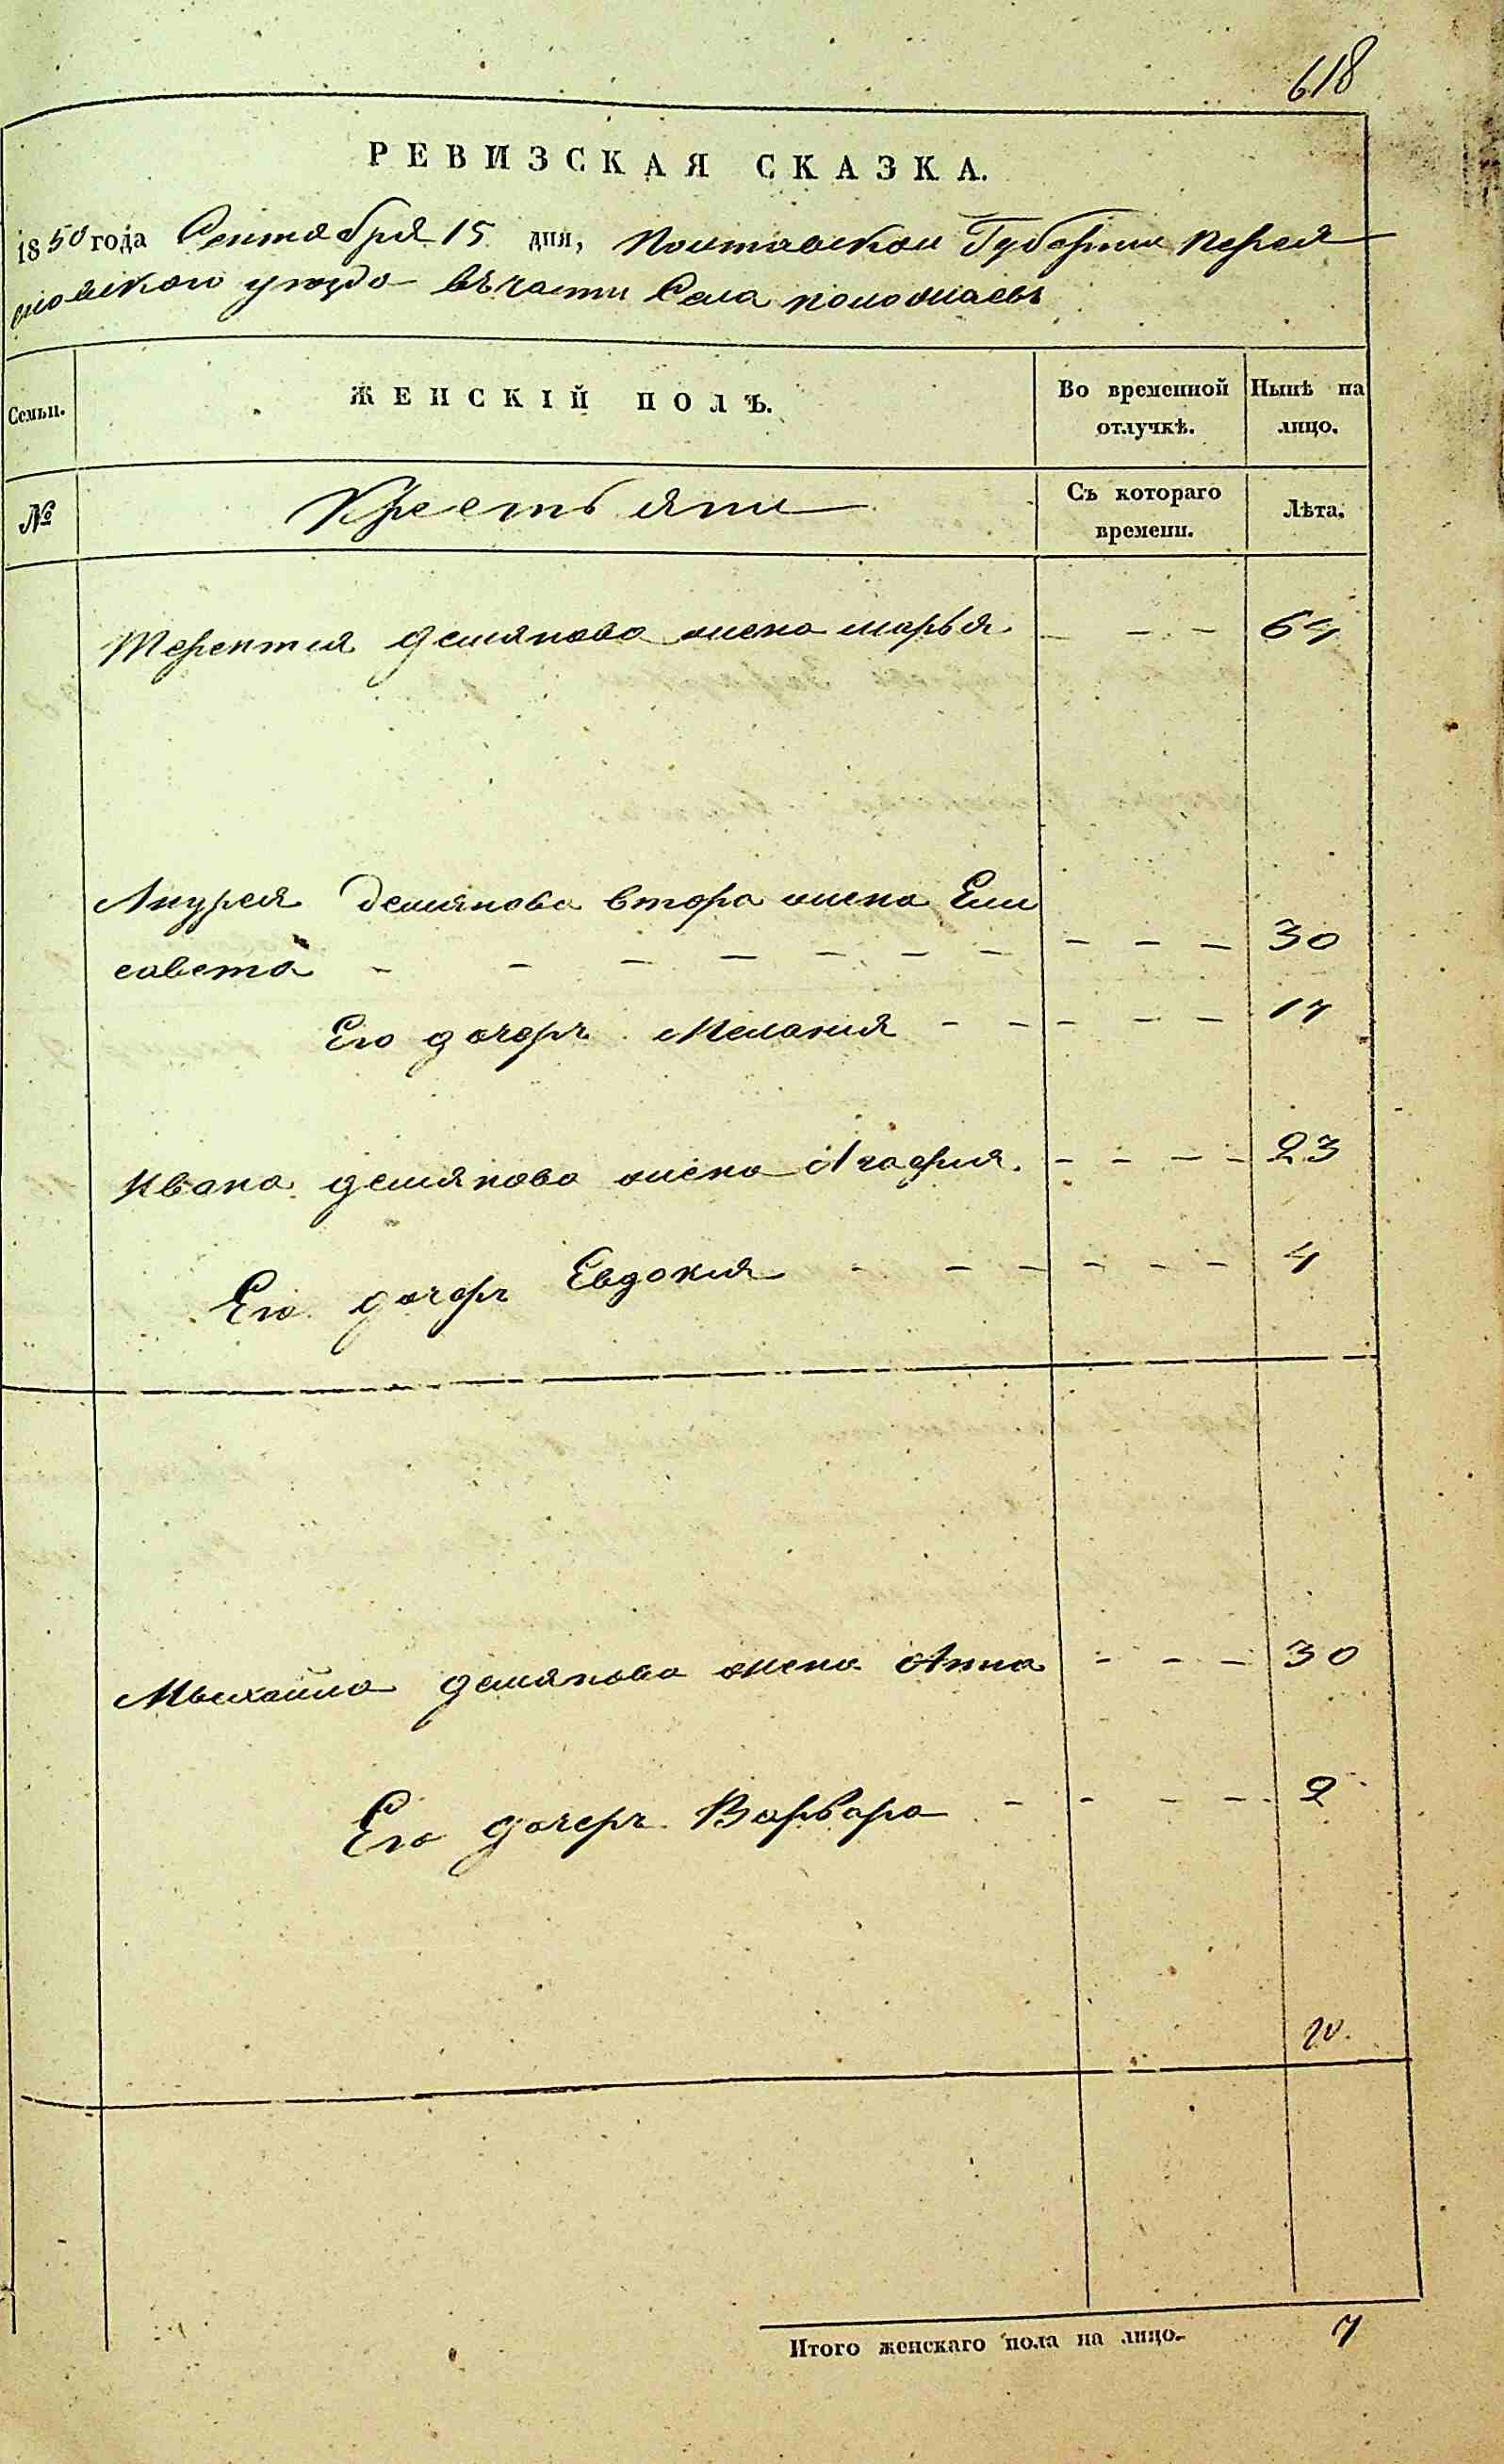 618
РЕВИЗСКАЯ СКАЗКА.
1850 года Сентября 15 дня, Полтавской Губернии Перея
словского уезда въ части Села
Семьи.
ЖЕНСКІЙ ПОЛЪ.
Во временной отлучкѣ.
Нынѣ на лицо.
№
Крестьяни
Съ котораго времени.
Лѣта.
Терентия демянова жена марья - - - 64
Андрея Демянова втора жена Ели
савета - - - - - - - - - - 30
Его дочерь Мелания - - - - - 17
Ивана демянова жена Агафия. - - - - 23
Его дочерь Евдокия - - - - - - - 4
Михайла демянова жена Анна - - - 30
Его дочерь Варвара - - - - 2
Итого женскаго пола на лицо. 7